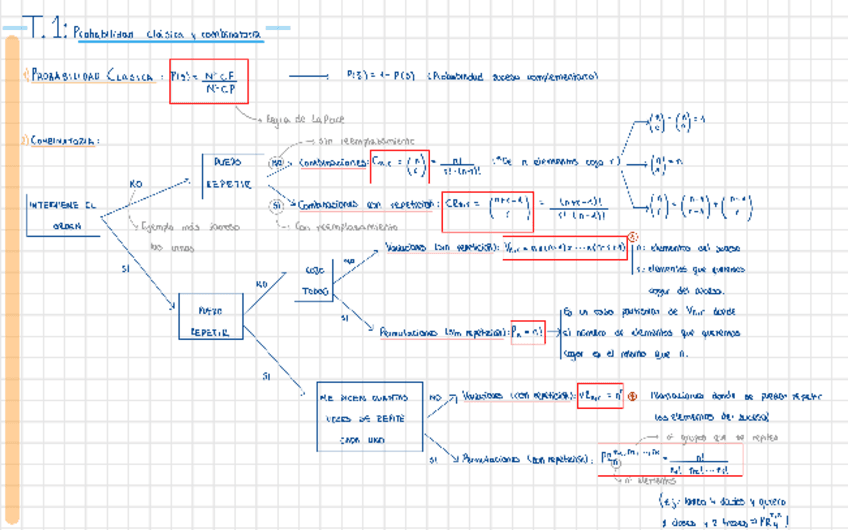 T.1: Probabilidad clásica y combinatoria
1) PROBABILIDAD CLÁSICA: P(S) = NºCF / NºCP → P(S̄) = 1 - P(S) (Probabilidad suceso complementario)
Regla de LaPlace
2) COMBINATORIA:
INTERVIENE EL ORDEN
NO
Ejemplo más suceso las urnas
PUEDO REPETIR
NO
Sin reemplazamiento
Combinaciones: C n,r = (n r) = n! / r!·(n-r)! "De n elementos cojo r"
(n 0) = (n n) = 1
(n 1) = n
(n r) = (n-1 r-1) + (n-1 r)
SI
Con reemplazamiento
Combinaciones con repetición: CR n,r = (n+r-1 r) = (n+r-1)! / r!·(n-1)!
SI
PUEDO REPETIR
NO
COJO TODOS
NO
Variaciones (sin repetición): V n,r = n×(n-1)×...×(n-r+1)
n: elementos del suceso
r: elementos que queremos coger del suceso.
SI
Permutaciones (sin repetición): P n = n!
Es un caso particular de V n,r donde
el número de elementos que queremos
coger es el mismo que n.
SI
ME DICEN CUANTAS VECES SE REPITE CADA UNO
NO
Variaciones (con repetición): VR n,r = n^r
(Variaciones donde se pueden repetir
los elementos del suceso)
SI
Permutaciones (con repetición):
n! / n1!·n2!···nk!
nº grupos que se repiten
nº elementos
(ej: lanzo 4 dados y quiero
2 doses y 2 treses ⇒ PR 4 2,2)